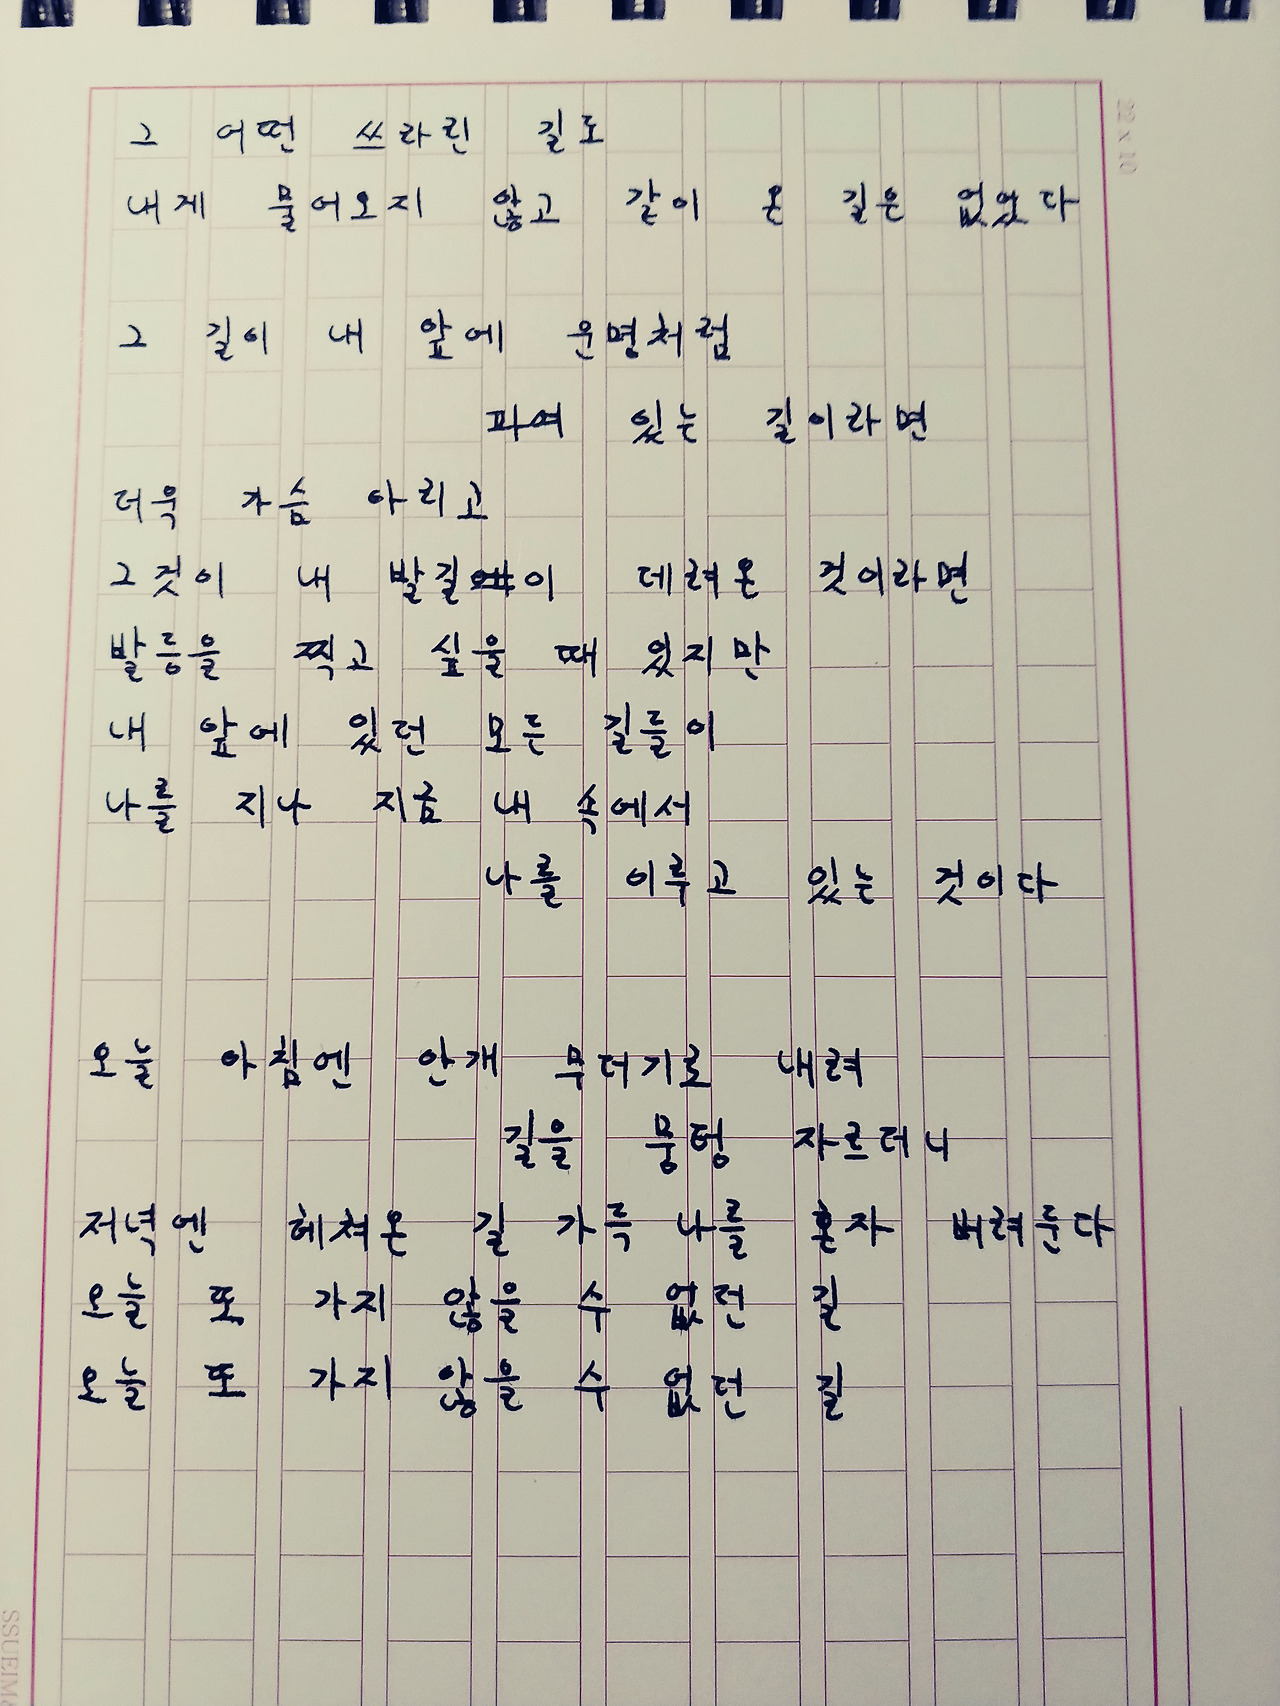 22 x 10
그 어떤 쓰라린 길도
내게 물어오지 않고 같이 온 길은 없었다
그 길이 내 앞에 운명처럼
파여 있는 길이라면
더욱 가슴 아리고
그것이 내 발길이 데려온 것이라면
발등을 찍고 싶을 때 있지만
내 앞에 있던 모든 길들이
나를 지나 지금 내 속에서
나를 이루고 있는 것이다
오늘 아침엔 안개 무더기로 내려
길을 뭉텅 자르더니
저녁엔 헤쳐온 길 가득 나를 혼자 버려둔다
오늘 또 가지 않을 수 없던 길
오늘 또 가지 않을 수 없던 길